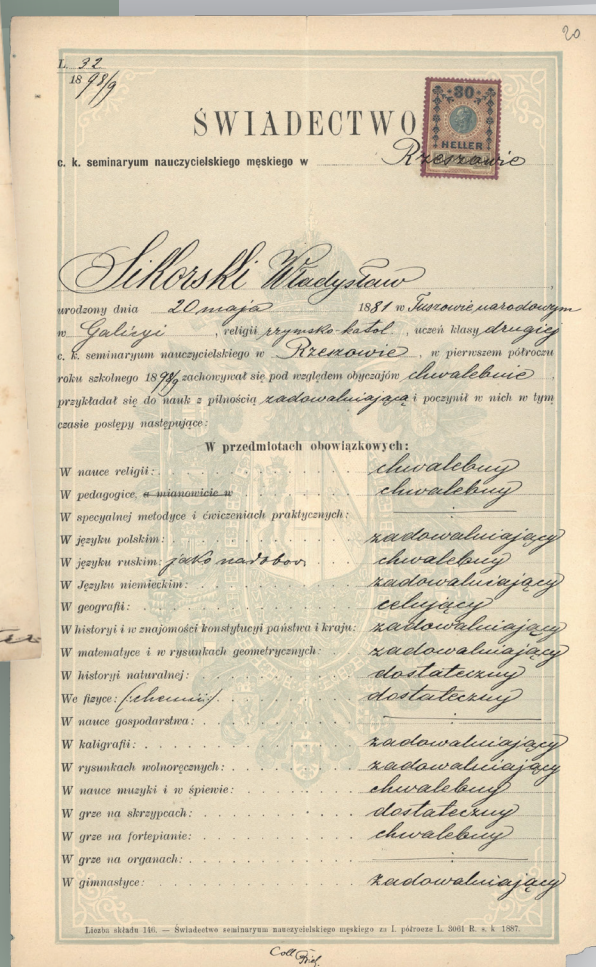 20
L. 32
1898/9
30
HELLER
ŚWIADECTWO
c. k. seminaryum nauczycielskiego męskiego w Rzeszowie
Sikorski Władysław
urodzony dnia 20 maja 1881 w Tuszowie narodowym
w Galicyi, religii rzymsko-katol., uczeń klasy drugiej
c. k. seminaryum nauczycielskiego w Rzeszowie, w pierwszem półroczu
roku szkolnego 1898/9 zachowywał się pod względem obyczajów chwalebnie,
przykładał się do nauk z pilnością zadowalniającą i poczynił w nich w tym
czasie postępy następujące:
W przedmiotach obowiązkowych:
W nauce religii: chwalebny
W pedagogice, a mianowicie w chwalebny
W specyalnej metodyce i ćwiczeniach praktycznych:
W języku polskim: zadowalniający
W języku ruskim: jako nadobow. chwalebny
W Języku niemieckim: zadowalniający
W geografii: celujący
W historyi i w znajomości konstytucyi państwa i kraju: zadowalniający
W matematyce i w rysunkach geometrycznych: zadowalniający
W historyi naturalnej: dostateczny
We fizyce: (:chemii:) dostateczny
W nauce gospodarstwa:
W kaligrafii: zadowalniający
W rysunkach wolnoręcznych: zadowalniający
W nauce muzyki i w śpiewie: chwalebny
W grze na skrzypcach: dostateczny
W grze na fortepianie: chwalebny
W grze na organach:
W gimnastyce: zadowalniający
Liczba składu 146. — Świadectwo seminaryum nauczycielskiego męskiego za I. półrocze L. 3061 R. s. k 1887.